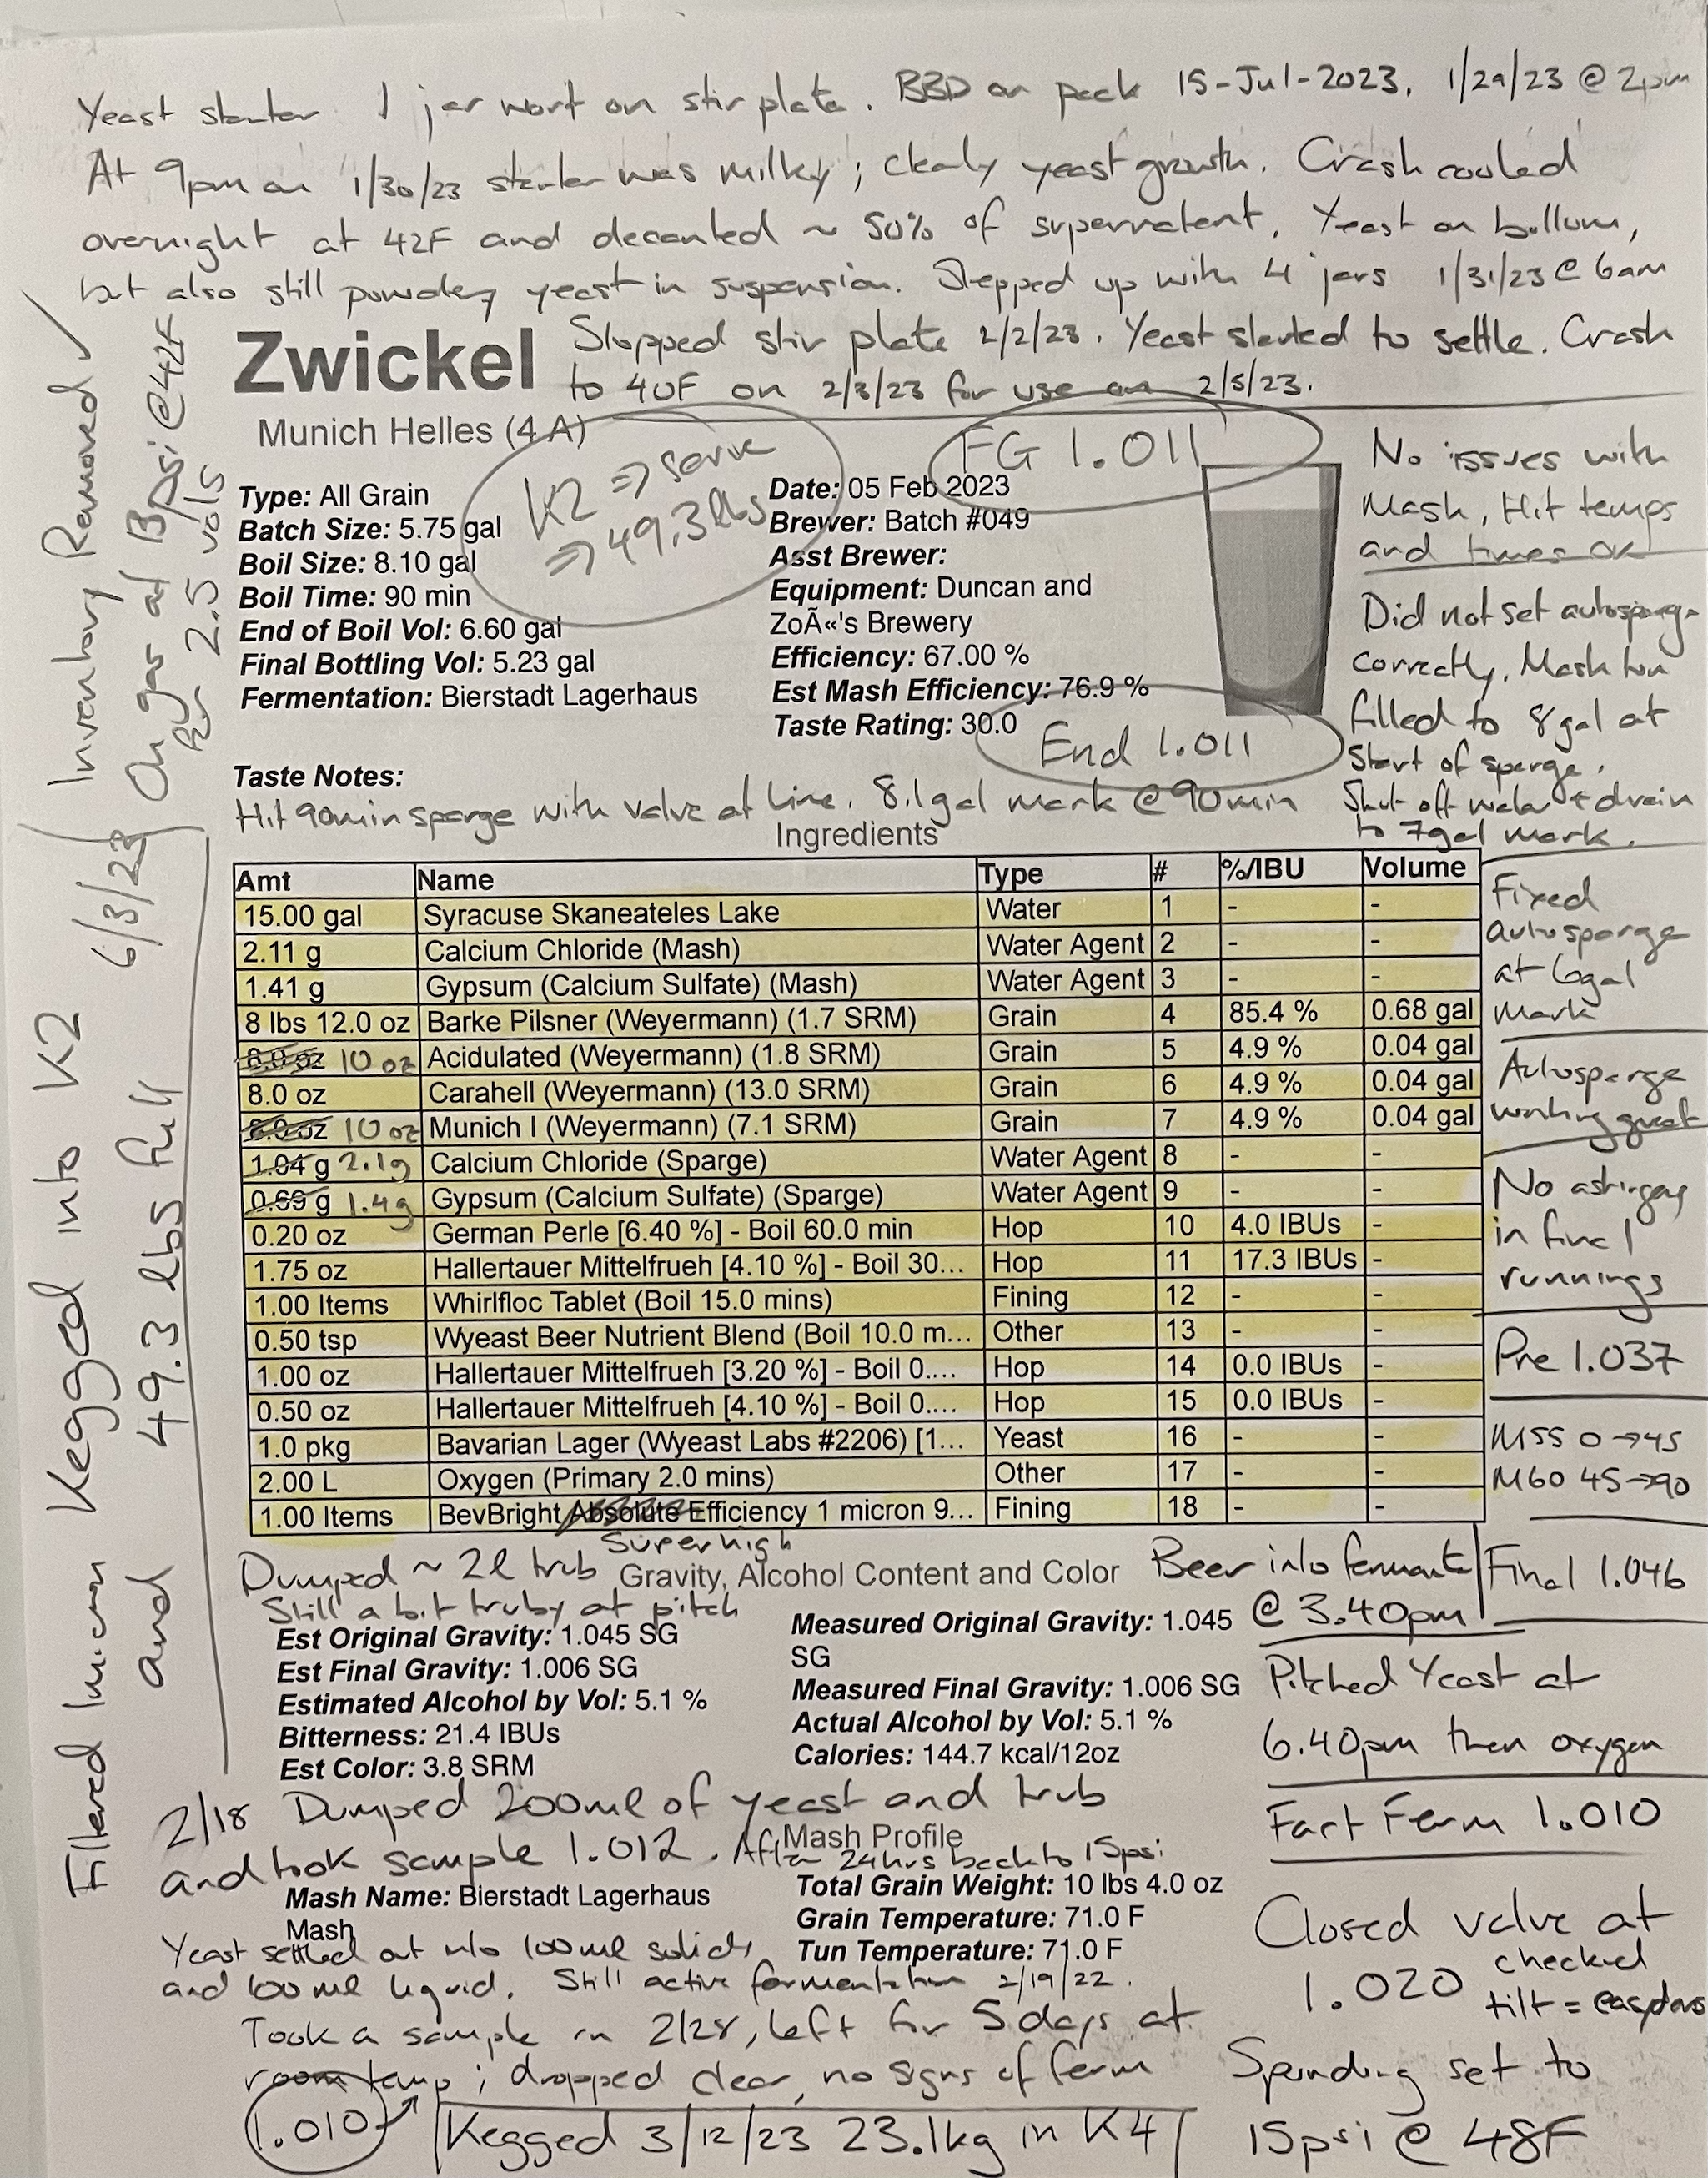 Yeast starter 1 jar wort on stir plate. BBD on pack 15-Jul-2023. 1/29/23 @ 2pm
At 9pm on 1/30/23 starter was milky; clearly yeast growth. Crash cooled
overnight at 42F and decanted ~ 50% of supernatent. Yeast on bottom,
but also still powdery yeast in suspension. Stepped up with 4 jars 1/31/23 @ 6am
Stopped stir plate 2/2/23. Yeast started to settle. Crash
to 40F on 2/3/23 for use on 2/5/23.
Zwickel
Munich Helles (4 A)
K2 => serve
=> 49.3 lbs
FG 1.011
Type: All Grain
Batch Size: 5.75 gal
Boil Size: 8.10 gal
Boil Time: 90 min
End of Boil Vol: 6.60 gal
Final Bottling Vol: 5.23 gal
Fermentation: Bierstadt Lagerhaus
Date: 05 Feb 2023
Brewer: Batch #049
Asst Brewer:
Equipment: Duncan and
ZoÃ«'s Brewery
Efficiency: 67.00 %
Est Mash Efficiency: 76.9 %
Taste Rating: 30.0
End 1.011
Taste Notes:
Hit 90min sparge with valve at line. 8.1gal mark @ 90min
No issues with
Mash, Hit temps
and times OK
Did not set autosparge
correctly, Mash tun
filled to 8 gal at
start of sparge.
Shut off water + drain
to 7gal mark.
Ingredients
Amt Name Type # %/IBU Volume
15.00 gal Syracuse Skaneateles Lake Water 1 - -
2.11 g Calcium Chloride (Mash) Water Agent 2 - -
1.41 g Gypsum (Calcium Sulfate) (Mash) Water Agent 3 - -
8 lbs 12.0 oz Barke Pilsner (Weyermann) (1.7 SRM) Grain 4 85.4 % 0.68 gal
8.0 oz 10 oz Acidulated (Weyermann) (1.8 SRM) Grain 5 4.9 % 0.04 gal
8.0 oz Carahell (Weyermann) (13.0 SRM) Grain 6 4.9 % 0.04 gal
8.0 oz 10 oz Munich I (Weyermann) (7.1 SRM) Grain 7 4.9 % 0.04 gal
1.04 g 2.1g Calcium Chloride (Sparge) Water Agent 8 - -
0.69 g 1.4g Gypsum (Calcium Sulfate) (Sparge) Water Agent 9 - -
0.20 oz German Perle [6.40 %] - Boil 60.0 min Hop 10 4.0 IBUs -
1.75 oz Hallertauer Mittelfrueh [4.10 %] - Boil 30... Hop 11 17.3 IBUs -
1.00 Items Whirlfloc Tablet (Boil 15.0 mins) Fining 12 - -
0.50 tsp Wyeast Beer Nutrient Blend (Boil 10.0 m... Other 13 - -
1.00 oz Hallertauer Mittelfrueh [3.20 %] - Boil 0.... Hop 14 0.0 IBUs -
0.50 oz Hallertauer Mittelfrueh [4.10 %] - Boil 0.... Hop 15 0.0 IBUs -
1.0 pkg Bavarian Lager (Wyeast Labs #2206) [1... Yeast 16 - -
2.00 L Oxygen (Primary 2.0 mins) Other 17 - -
1.00 Items BevBright Absolute Efficiency 1 micron 9... Fining 18 - -
Super high
Fixed
autosparge
at 6gal
mark
Autosparge
working great
No astringency
in final
runnings
Pre 1.037
M55 0→45
M60 45→90
Final 1.046
Dumped ~ 2l trub
Still a bit truby at pitch
Gravity, Alcohol Content and Color
Beer into fermenter
@ 3.40pm
Est Original Gravity: 1.045 SG
Est Final Gravity: 1.006 SG
Estimated Alcohol by Vol: 5.1 %
Bitterness: 21.4 IBUs
Est Color: 3.8 SRM
Measured Original Gravity: 1.045
SG
Measured Final Gravity: 1.006 SG
Actual Alcohol by Vol: 5.1 %
Calories: 144.7 kcal/12oz
Pitched Yeast at
6.40pm then oxygen
Fast Ferm 1.010
2/18 Dumped 200ml of yeast and trub
and took sample 1.012. After 24hrs back to 15psi
Mash Profile
Mash Name: Bierstadt Lagerhaus
Mash
Total Grain Weight: 10 lbs 4.0 oz
Grain Temperature: 71.0 F
Tun Temperature: 71.0 F
Yeast settled out into 100ml solids
and 100ml liquid. Still active fermentation 2/19/22.
Took a sample on 2/28, left for 5 days at
room temp; dropped clear, no signs of ferm
1.010
Kegged 3/12/23 23.1kg in K4
Closed valve at
1.020 checked
tilt =
Spunding set to
15psi @ 48F
Inventory Removed ✓
On gas at 13psi @ 42F
for 2.5 vols
Filtered 1micron Kegged into K2 6/3/23
and 49.3 lbs full